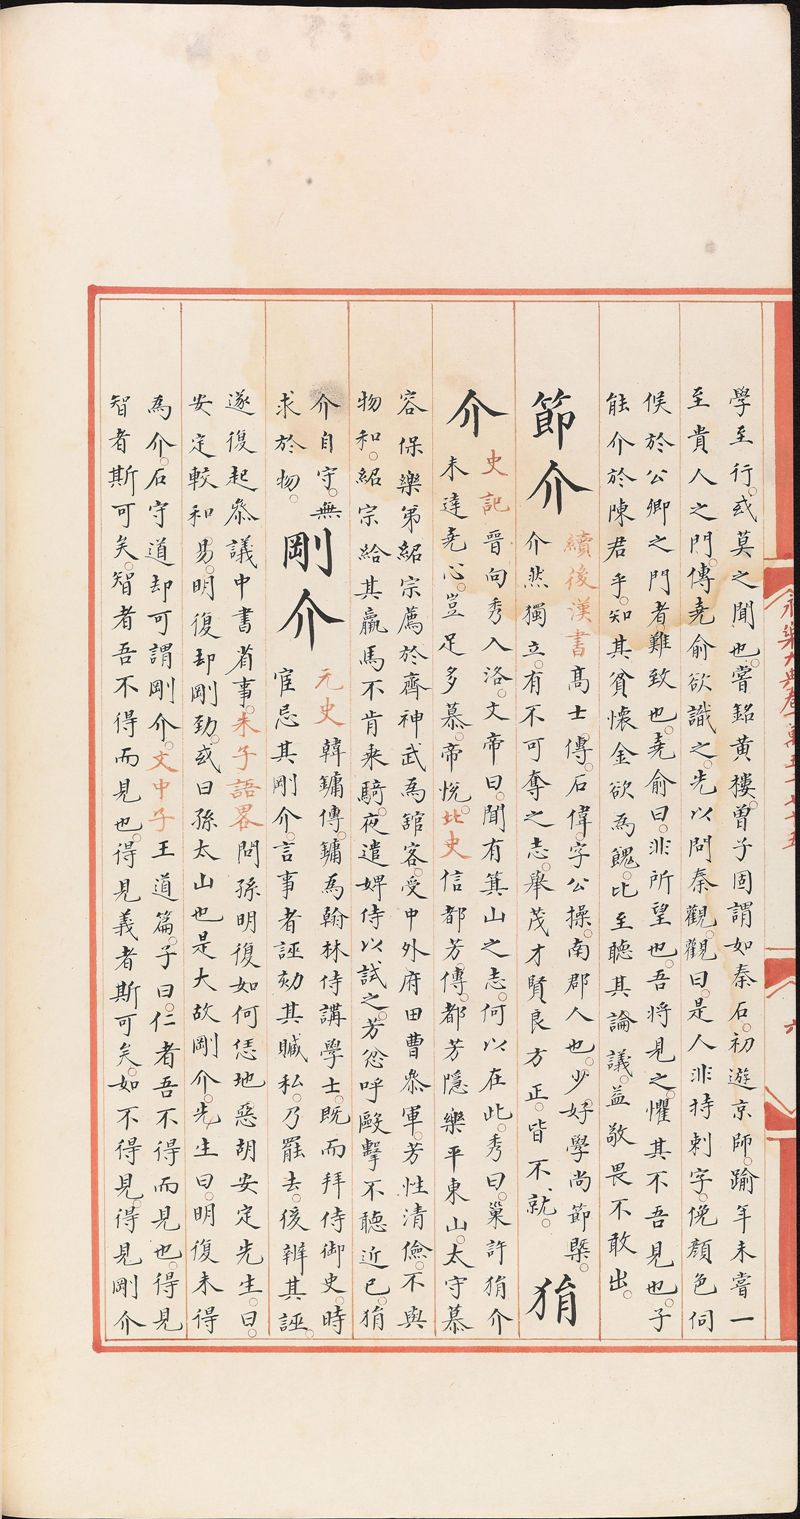 永樂大典卷一萬五千七十五
六
學至行。或莫之聞也。嘗銘黃樓。曾子固謂如秦石。初遊京師。踰年未嘗一
至貴人之門。傳堯俞欲識之。先以問秦觀。觀曰。是人非持刺字。俛顏色伺
候於公卿之門者。難致也。堯俞曰。非所望也。吾將見之。懼其不吾見也。子
能介於陳君乎。知其貧。懷金欲為餽。比至聽其論議。益敬畏不敢出。
節介
續後漢書高士傳。石偉。字公操。南郡人也。少好學尚節槩。
介然獨立。有不可奪之志。舉茂才賢良方正。皆不就。
狷
介
史記晉向秀入洛。文帝曰。聞有箕山之志。何以在此。秀曰。巢許狷介
未達堯心。豈足多慕。帝悅。北史信都芳傳。都芳隱樂平東山。太守慕
容保樂弟紹宗薦於齊神武為館客。受中外府田曹參軍。芳性清儉。不與
物和。紹宗給其羸馬不肯乘騎。夜遣婢侍以試之。芳忿呼毆擊不聽近己。狷
介自守。無
求於物。
剛介
元史韓鏞傳。鏞為翰林侍講學士。既而拜侍御史。時
宦忌其剛介。言事者誣劾其贓私。乃罷去。後辨其誣。
遂復起參議中書省事。朱子語畧問孫明復如何恁地惡胡安定先生。曰。
安定較和易。明復却剛勁。或曰孫太山也是大故剛介。先生曰。明復未得
為介。石守道却可謂剛介。文中子王道篇。子曰。仁者吾不得而見也。得見
智者斯可矣。智者吾不得而見也。得見義者斯可矣。如不得見。得見剛介